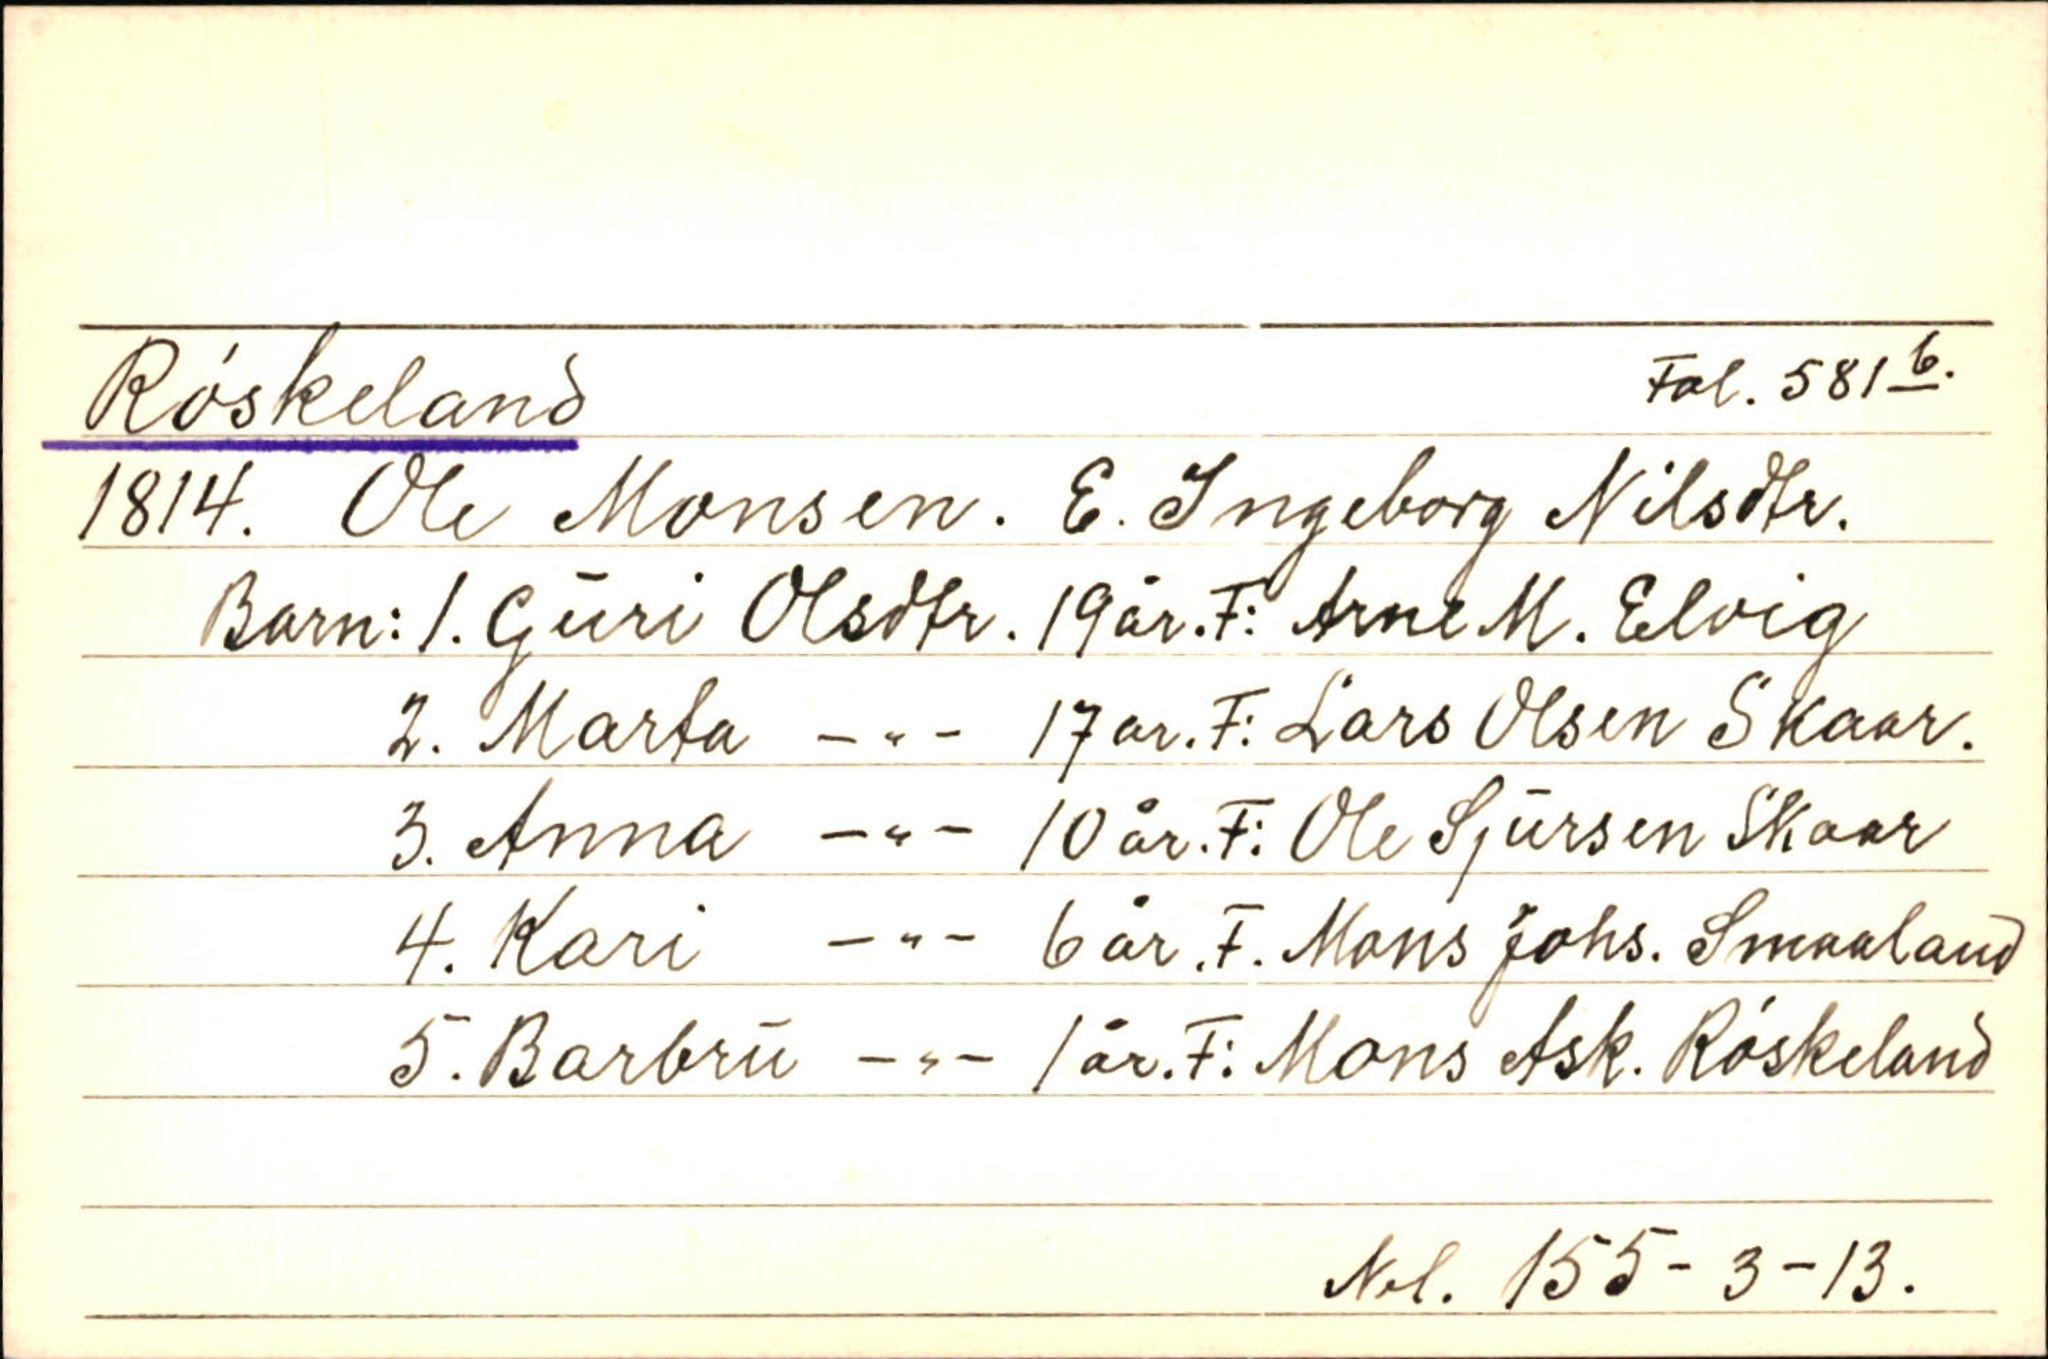 Röskeland Fol. 581 b.
1814. Ole Monsen. E. Ingeborg Nilsdtr.
Barn: 1. Guri Olsdtr. 19 år. F: Arne M. Elvig
2. Marta -"- 17 år. F: Lars Olsen Skaar.
3. Anna -"- 10 år. F: Ole Sjursen Skaar
4. Kari -"- 6 år. F. Mons Johs. Smaaland
5. Barbru -"- 1 år. F: Mons Ask. Röskeland
Nel. 155 - 3 - 13.